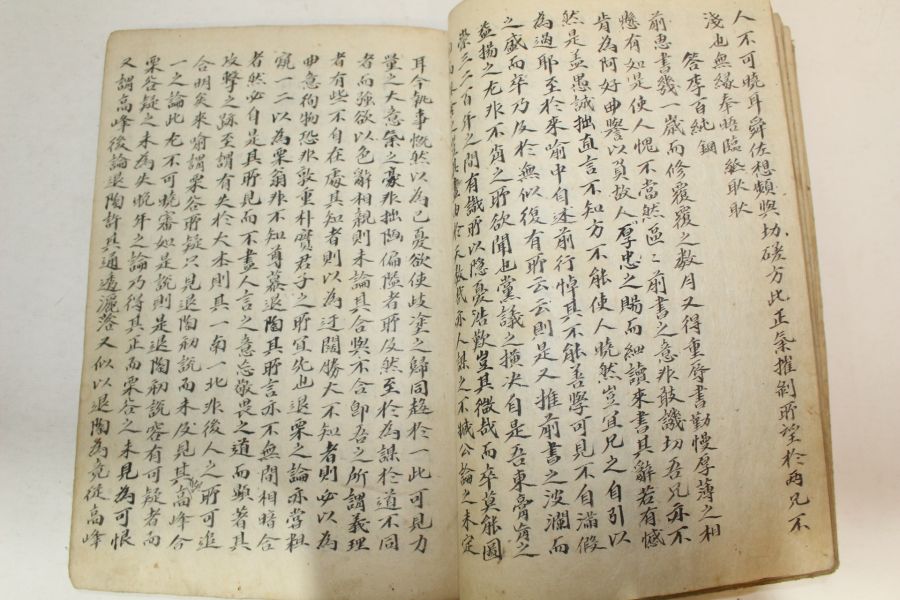 人不可曉耳舜佐想頻與切磋方此正氣摧剝所望於兩兄不
淺也無緣奉晤臨紙耿耿
答李百純鋼
前惠書幾一歲而修覆覆之數月又得重辱書勤慢厚薄之相
懸有如是使人愧不當然區區前書之意非敢譏切吾兄亦不
肯為阿好曲譽以負故人厚忠之賜而細讀來書其辭若有憾
然是益愚誠拙直言不知方不能使人曉然豈宜兄之自引以
為過耶至於來喻中自述前行悼其不能善學可見不自滿假
之盛而卒乃反於無似復有所云云則是又推前書之波瀾而
益揚之尤非不肖之所欲聞也黨議之擴決自是吾東膏肓之
二百年之間有識所以隱憂浩歎豈其微哉而卒莫能圖
於天人之不公論之未定
耳今執事慨然以為己憂欲使歧塗之歸同趨於一此可見力
量之大意槩之豪非拙陋偏隘者所及然至於為謀於道不同
者而強欲以色辭相親則未論其合與不合卽吾之所謂義理
者有些不自在處其知者則以為迂闊勝大不知者則必以為
曲意徇物恐非敦重朴實君子之所宜先也退栗之論亦嘗粗
窺一二以為栗翁非不知尊慕退陶其所言亦不無間相暗合
者然必自是其所見而不盡人言之意忘敬畏之道而顯著其
攻擊之跡至謂有失於大本則其一南一北非後人之所可追
合明矣來喻謂栗谷所疑只見退陶初說而未及見其高峰合
一之論此尤不可曉審如是說則是退陶初說容有可疑者而
栗谷疑之未為失晚年之論乃得其正而栗谷之未見為可恨
又謂高峰後論退陶許其通透灑落又似以退陶為竟從高峰